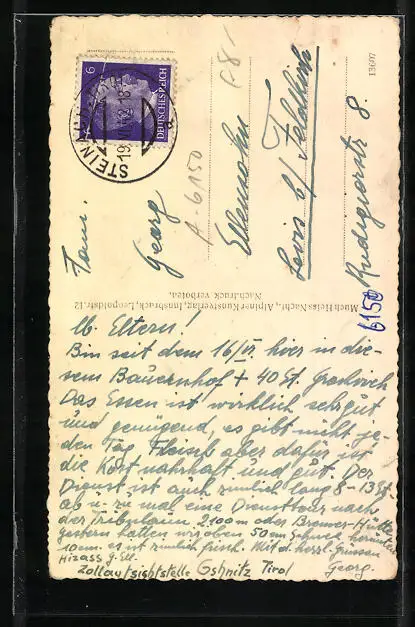 lb. Eltern!
Bin seit dem 16/VI. hier in die-
sem Bauernhof
Das Essen ist wirklich sehr gut
und genügend, es gibt nicht je-
den Tag Fleisch aber dafür ist
die Kost nahrhaft und gut. Der
Dienst ist auch ziemlich lang 8-13 St.
ab u. zu mal eine Diensttour nach
der Tribulaun. 2100 m oder Bremer-Hütte
gestern hatten wir oben 50 m Schnee, herunten
10 cm. es ist ziemlich frisch. Mit d. herzl. Grüssen
Georg.
Zollaufsichtstelle Gshnitz Tirol
Much Heiss Nachf., Alpiner Kunstverlag, Innsbruck, Leopoldstr. 12
Nachdruck verboten.
6
DEUTSCHES REICH
STEINACH
Fam.
Georg
A-6150
Ellensohn
Levis b/ Feldkirch
Rudigierstr 8.
6150
13607